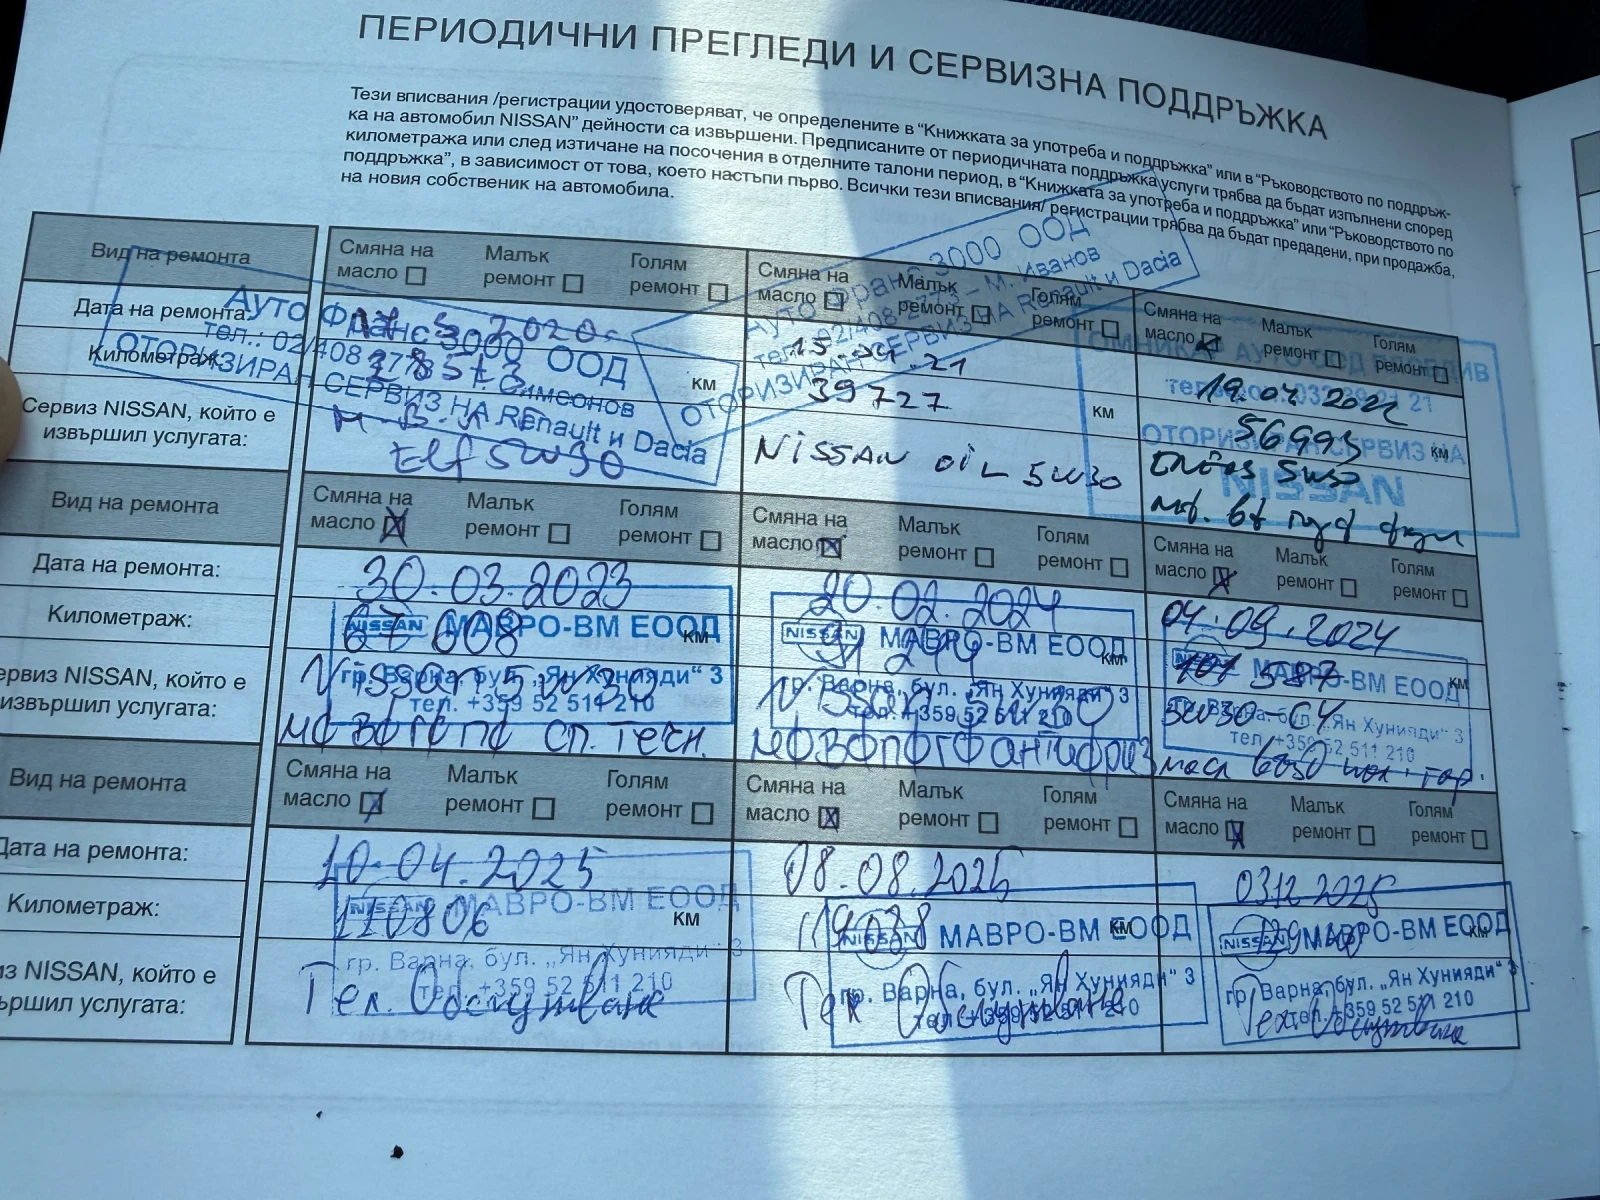 ПЕРИОДИЧНИ ПРЕГЛЕДИ И СЕРВИЗНА ПОДДРЪЖКА
Тези вписвания /регистрации удостоверяват, че определените в “Книжката за употреба и поддръжка” или в “Ръководството по поддръж-
ка на автомобил NISSAN” дейности са извършени. Предписаните от периодичната поддръжка услуги трябва да бъдат изпълнени според
километража или след изтичане на посочения в отделните талони период, в “Книжката за употреба и поддръжка” или “Ръководството по
поддръжка”, в зависимост от това, което настъпи първо. Всички тези вписвания/ регистрации трябва да бъдат предадени, при продажба,
на новия собственик на автомобила.
Вид на ремонта
Смяна на масло Малък ремонт Голям ремонт
Смяна на масло Малък ремонт Голям ремонт
Смяна на масло Малък ремонт Голям ремонт
Дата на ремонта:
2020
15.04.21
19.04 2022
Километраж:
км
39727 км
56993 км
Сервиз NISSAN, който е
извършил услугата:
Elf 5W30
NiSSAN OiL 5W30
5W30
Ауто Франс 3000 ООД
тел.: 02/408 Симеонов
ОТОРИЗИРАН СЕРВИЗ НА Renault и Dacia
Ауто Франс 3000 ООД
тел.: 02/408 2773 – М. Иванов
ОТОРИЗИРАН СЕРВИЗ НА Renault и Dacia
ОМНИКАР АУТО ООД ПЛОВДИВ
ОТОРИЗИРАН СЕРВИЗ НА
NISSAN
Вид на ремонта
Смяна на масло Малък ремонт Голям ремонт
Смяна на масло Малък ремонт Голям ремонт
Смяна на масло Малък ремонт Голям ремонт
Дата на ремонта:
30.03.2023
20.02.2024
04.09.2024
Километраж:
67 608 км
км
101 387 км
ервиз NISSAN, който е
извършил услугата:
Nissan 5w30
МФ ВФ ГФ ПФ сп. течн.
МФ ВФ ПФ ГФ антифриз
5W30 C4
масл
NISSAN МАВРО-ВМ ЕООД
гр. Варна, бул. „Ян Хунияди“ 3
тел. +359 52 511 210
NISSAN МАВРО-ВМ ЕООД
гр. Варна, бул. „Ян Хунияди“ 3
тел. +359 52 511 210
МАВРО-ВМ ЕООД
гр. Варна, бул. „Ян Хунияди“ 3
тел. +359 52 511 210
Вид на ремонта
Смяна на масло Малък ремонт Голям ремонт
Смяна на масло Малък ремонт Голям ремонт
Смяна на масло Малък ремонт Голям ремонт
Дата на ремонта:
10.04.2025
08.08.2025
03.12.2025
Километраж:
110806 км
119038 км
км
из NISSAN, който е
вършил услугата:
Тех. Обслужване
Тех Обслужване
Тех. Обслужване
NISSAN МАВРО-ВМ ЕООД
гр. Варна, бул. „Ян Хунияди“ 3
тел. +359 52 511 210
NISSAN МАВРО-ВМ ЕООД
гр. Варна, бул. „Ян Хунияди“ 3
тел. +359 52 511 210
NISSAN МАВРО-ВМ ЕООД
гр. Варна, бул. „Ян Хунияди“ 3
тел. +359 52 511 210